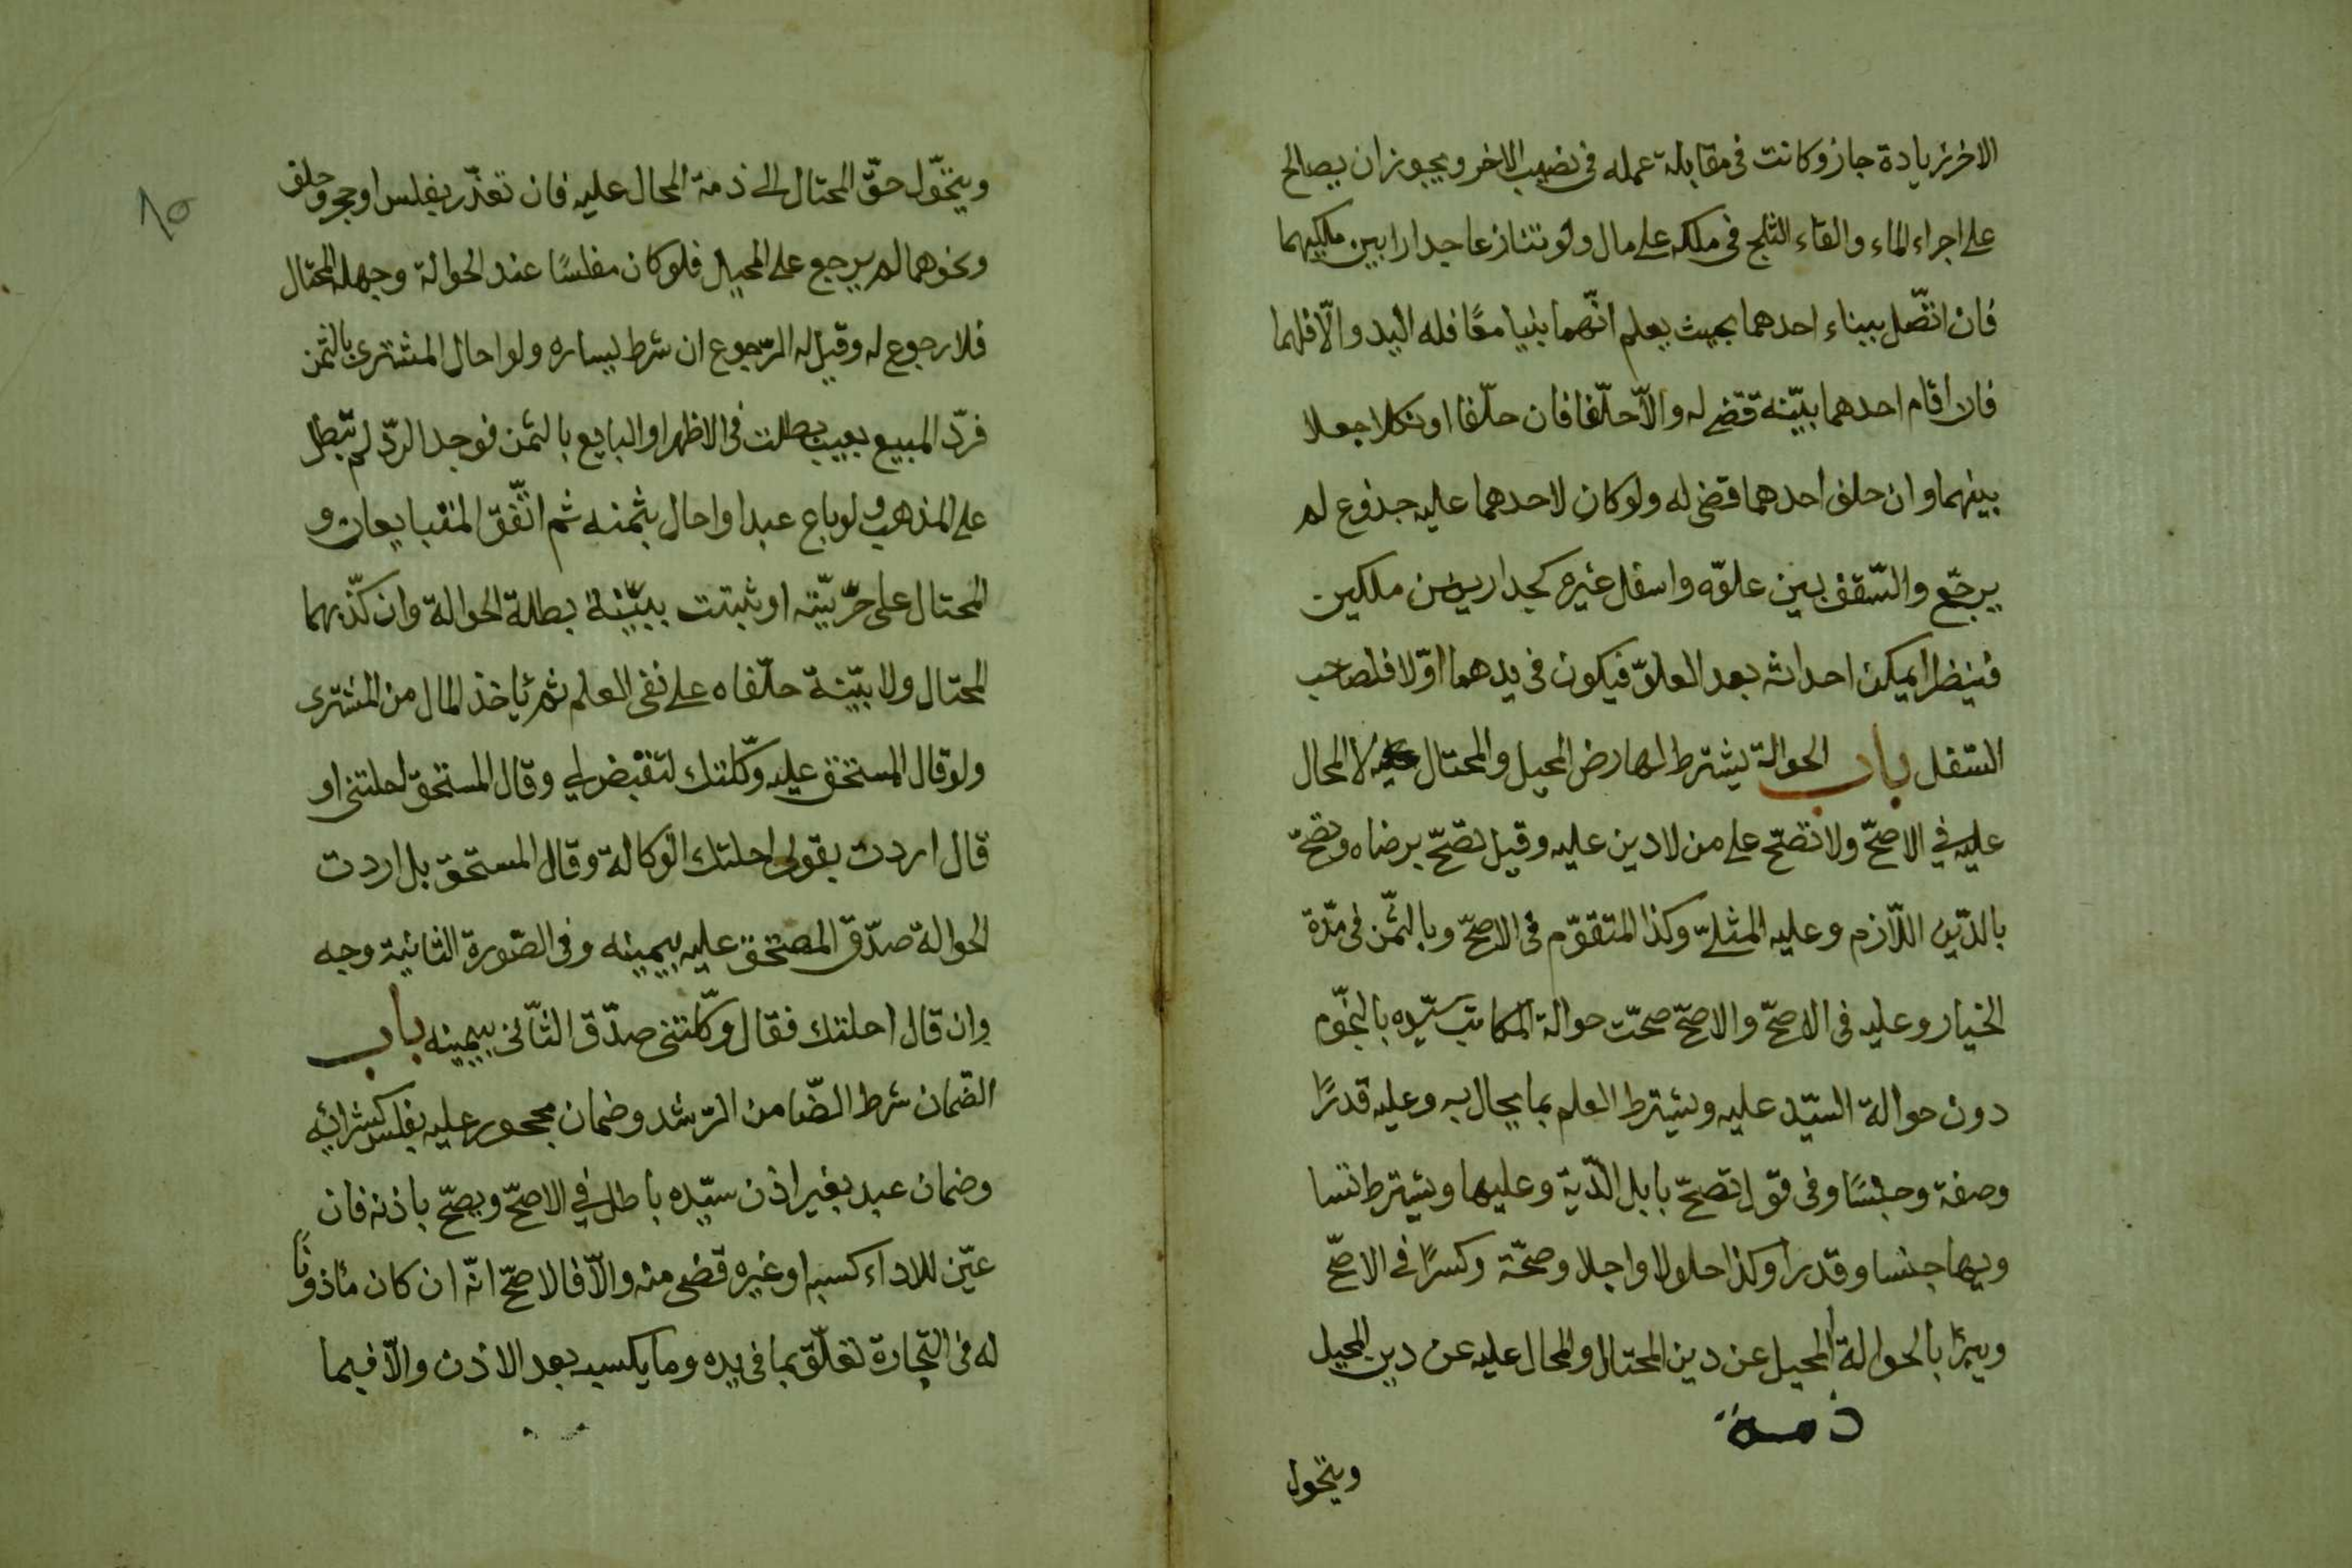 الاخر زيادة جاز وكانت فى مقابلة عمله فى نصيب الاخر ويجوز ان يصالح
على اجراء الماء والقاء الثلج فى ملكه على مال ولو تنازعا جدارا بين ملكيهما
فان اتّصل ببناء احدهما بحيث يعلم انّهما بنيا معًا فله اليد والّا فلهما
فان اقام احدهما بيّنه قضى له والّا حلّفا فان حلّفا او نكلا جعلا
بينهما وان حلف احدهما قضى له ولو كان لاحدهما عليه جذوع لم
يرجّع والسّقف بين علوّه واسفل غيره كجدار بين ملكين
فينظر ايمكن احداثه بعد العلوّ فيكون فى يدهما اوّلا فلصاحب
السّفل باب الحوالة يشترط لها رض المحيل والمحتال لا المحال
عليه في الاصحّ ولا تصّح على من لا دين عليه وقيل تصّح برضاه وتصّح
بالدّين اللّازم وعليه المثلىّ وكذا المتقوّم فى الاصحّ وبالثّمن فى مدّة
الخيار وعليه فى الاصحّ والاصحّ صحّت حوالة المكاتب سيّده بالنجّوم
دون حوالة السيّد عليه ويشترط العلم بما يحال به وعليه قدرًا
وصفة وجنسًا وفى قول تصحّ بابل الدّية وعليها ويشترط تسا
ويهما جنسا وقدرا وكذا حلولا واجلا وصحّة وكسرًا فى الاصّح
ويبرأ بالحوالة المحيل عن دين المحتال والمحال عليه عن دين المحيل
ذمة
ويتحول
١٥
ويتحّول حقّ المحتال الى ذمة المحال عليه فان تعذّر بفلس او جحر وحلف
ونحوهما لم يرجع على المحيل فلو كان مفلسًا عند الحوالة وجهله المحتال
فلا رجوع له وقيل له الرّجوع ان شرط يساره ولو احال المشترى بالثمن
فردّ المبيع بعيب بطلت فى الاظهر او البايع بالثمن فوجد الردّ لم تبطل
على المذهب ولو باع عبدا واحال بثمنه ثم اتّفق المتبايعان و
المحتال على حرّيّته او ثبتت ببيّنة بطلة الحوالة وان كذّبهما
المحتال ولا بيّنة حلّفاه على نفى العلم ثم يأخذ المال من المشترى
ولو قال المستحق عليه وكّلتك لتقبض لي وقال المستحقّ احلتنى او
قال اردت بقولى احلتك الوكالة وقال المستحق بل اردت
الحوالة صدّق المصتحق عليه بيمينه وفى الصّورة الثانية وجه
وان قال احلتك فقال وكّلتنى صدّق الثّانى بيمينه باب
الضّمان شرط الضّامن الرّشد وضمان محجور عليه بفلس كشرائه
وضمان عبد بغير اذن سيّده باطل في الاصحّ ويصحّ باذنه فان
عيّن للاداء كسبه او غيره قضى منه والّا فالاصحّ انّه ان كان مأذونًا
له فى التّجارة تعلّق بما فى يده وما يكسبه بعد الاذن والّا فبما